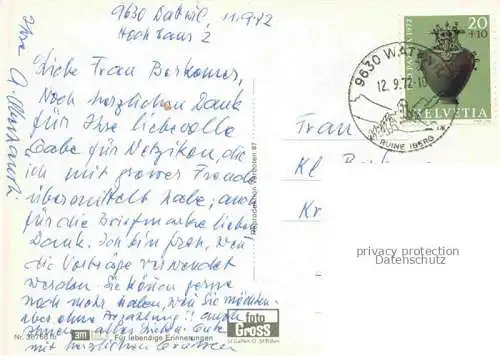 9630 Wattwil, 11.9.72
Hochhaus 2
Liebe Frau Berkomer,
Noch herzlichen Dank
für Ihre liebevolle
Gabe für Netzikon, die
ich mit grosser Freude
übermittelt habe; auch
für die Briefmarke lieben
Dank. Ich bin froh, wenn
die Vorträge verwendet
werden. Sie können gerne
noch mehr haben, wenn Sie möchten
aber ohne Bezahlung!! auch
Ihnen alles Gute
mit herzlichen Grüssen
Ihre
9630 WATTWIL
12.9.72-10
RUINE IBERG
PRO PATRIA 1972
20
+10
HELVETIA
Frau
Kl
Kr
privacy protection
Datenschutz
Reproduktion verboten 87
foto
Gross
St. Gallen
Nr.
Für lebendige Erinnerungen